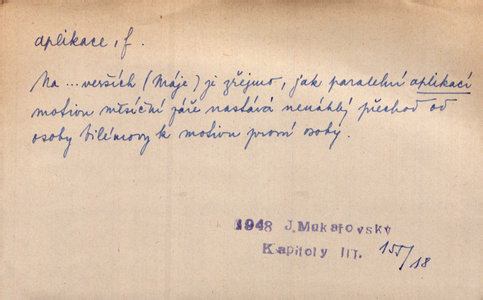 aplikace, f.
Na ... verších (Máje) je zřejmo, jak paralelní aplikací
motivu měsíční záře nastává nenáhlý přechod od
osoby Vilémovy k motivu první osoby.
1948 J. Mukařovský
Kapitoly III. 155/18